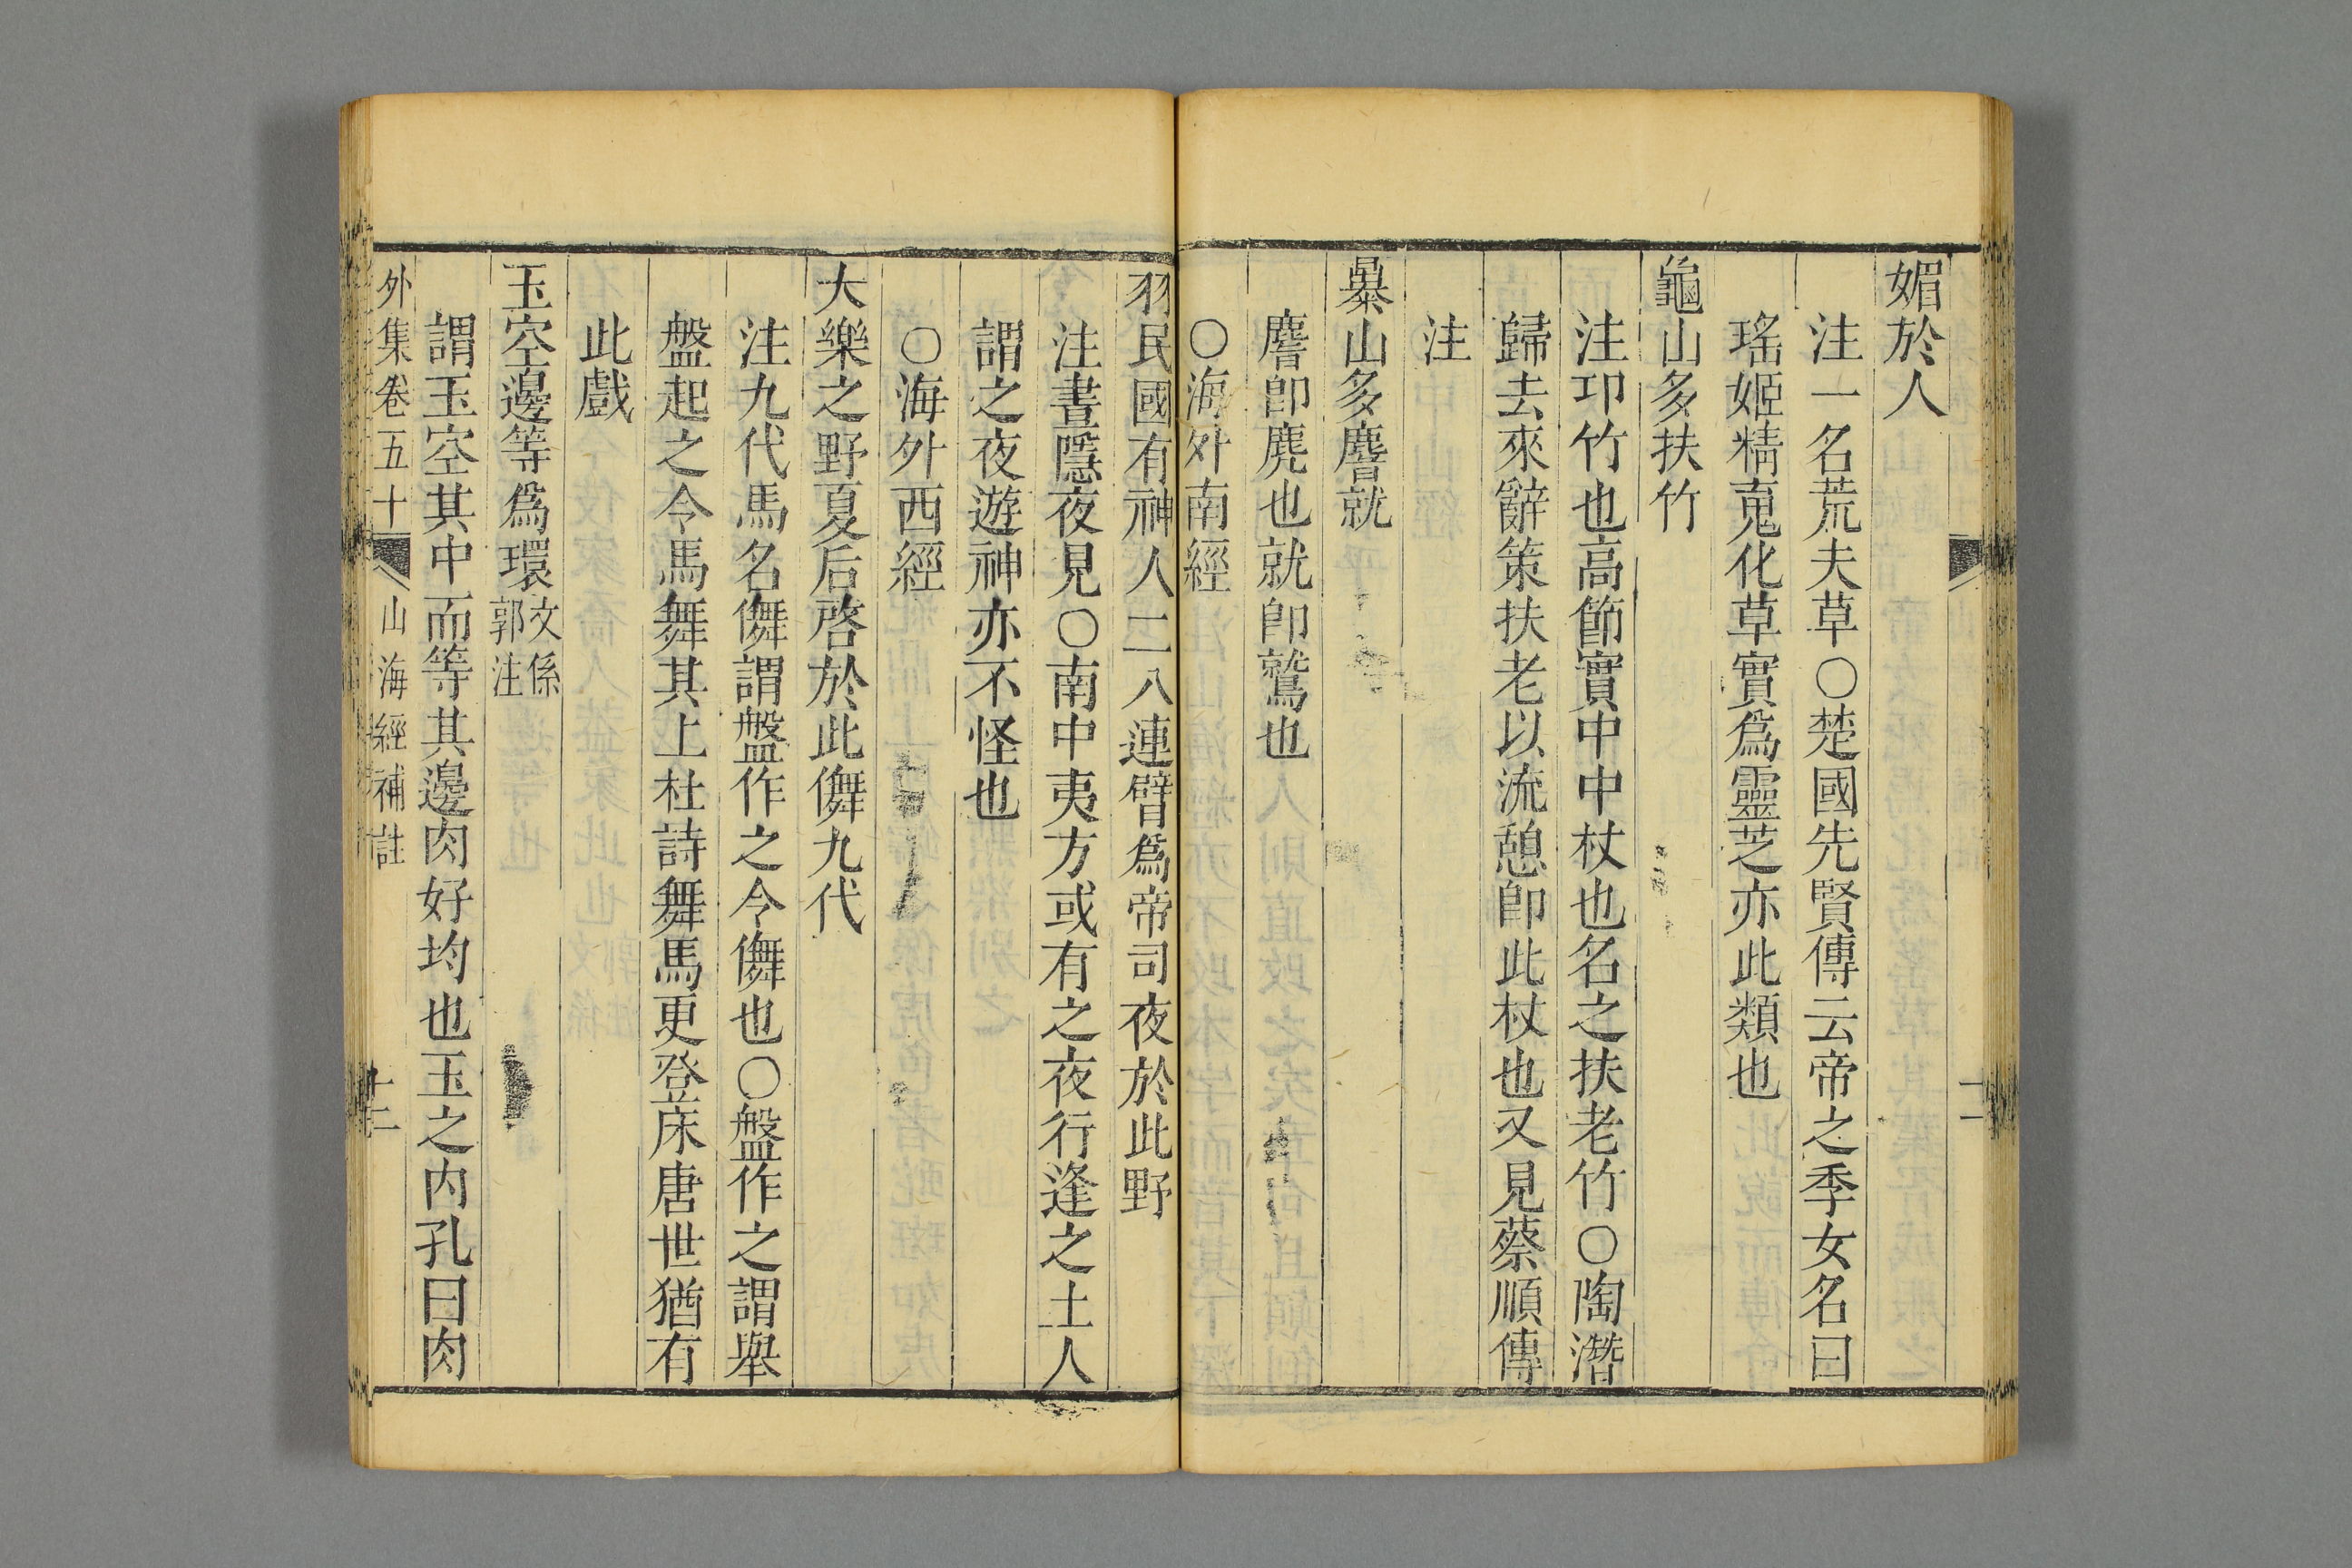 媚於人
注一名荒夫草○楚國先賢傳云帝之季女名曰
瑤姬精䰟化草實爲靈芝亦此類也
龜山多扶竹
注邛竹也高節實中中杖也名之扶老竹○陶潛
歸去來辭策扶老以流憩卽此杖也又見蔡順傳
注
暴山多麐就
麐卽麂也就卽鷲也
○海外南經
羽民國有神人二八連臂爲帝司夜於此野
注晝隱夜見○南中夷方或有之夜行逢之土人
謂之夜遊神亦不怪也
○海外西經
大樂之野夏后啓於此儛九代
注九代馬名儛謂盤作之令儛也○盤作之謂舉
盤起之令馬舞其上杜詩舞馬更登床唐世猶有
此戲
玉空邊等爲環文係郭注
謂玉空其中而等其邊肉好均也玉之内孔曰肉
外集卷五十 山海經補註 十二